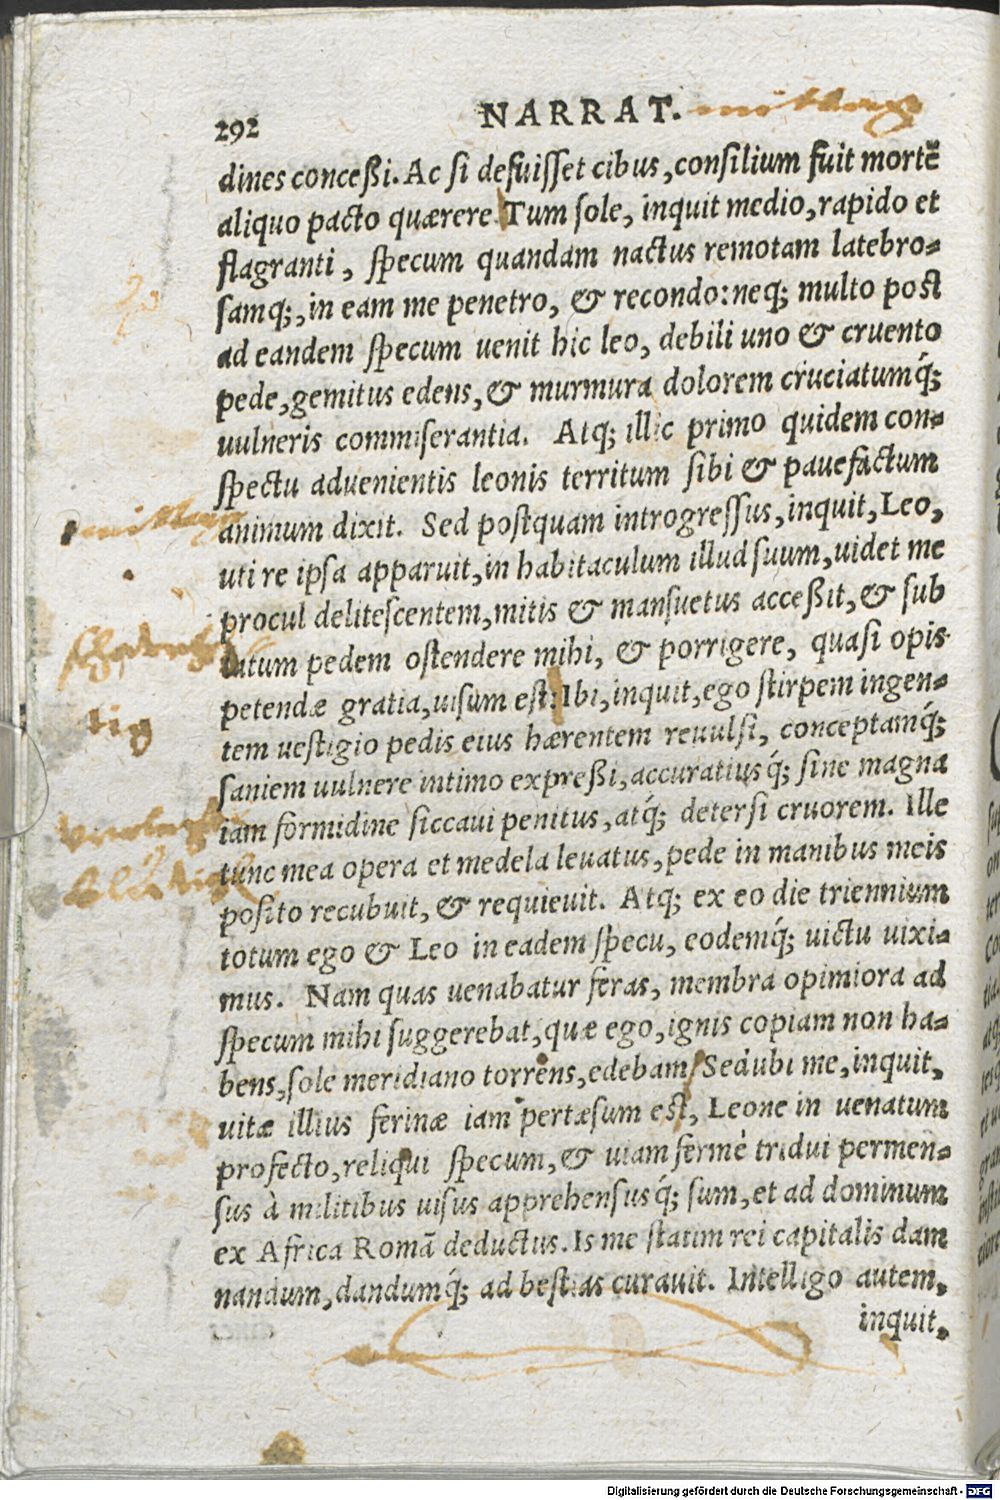 292 NARRAT.
dines conceßi. Ac si defuisset cibus, consilium fuit mortē
aliquo pacto quærere Tum sole, inquit medio, rapido et
flagranti, specum quandam nactus remotam latebro-
samq;, in eam me penetro, & recondo: neq; multo post
ad eandem specum uenit hic leo, debili uno & cruento
pede, gemitus edens, & murmura dolorem cruciatumq́;
uulneris commiserantia. Atq; illic primo quidem con-
spectu aduenientis leonis territum sibi & pauefactum
animum dixit. Sed postquam introgressus, inquit, Leo,
uti re ipsa apparuit, in habitaculum illud suum, uidet me
procul delitescentem, mitis & mansuetus acceßit, & sub
latum pedem ostendere mihi, & porrigere, quasi opis
petendæ gratia, uisum est: Ibi, inquit, ego stirpem ingen-
tem uestigio pedis eius hærentem reuulsi, conceptamq́;
saniem uulnere intimo expreßi, accuratiusq́; sine magna
iam formidine siccaui penitus, atq́; detersi cruorem. Ille
tunc mea opera et medela leuatus, pede in manibus meis
posito recubuit, & requieuit. Atq; ex eo die triennium
totum ego & Leo in eadem specu, eodemq́; uictu uixi-
mus. Nam quas uenabatur feras, membra opimiora ad
specum mihi suggerebat, quæ ego, ignis copiam non ha-
bens, sole meridiano torrens, edebam. Sed ubi me, inquit,
uitæ illius ferinæ iam pertæsum est, Leone in uenatum
profecto, reliqui specum, & uiam fermè tridui permen-
sus à militibus uisus apprehensusq́; sum, et ad dominum
ex Africa Romā deductus. Is me statim rei capitalis dam
nandum, dandumq́; ad bestias curauit. Intelligo autem,
inquit,
tig
Digitalisierung gefördert durch die Deutsche Forschungsgemeinschaft - DFG